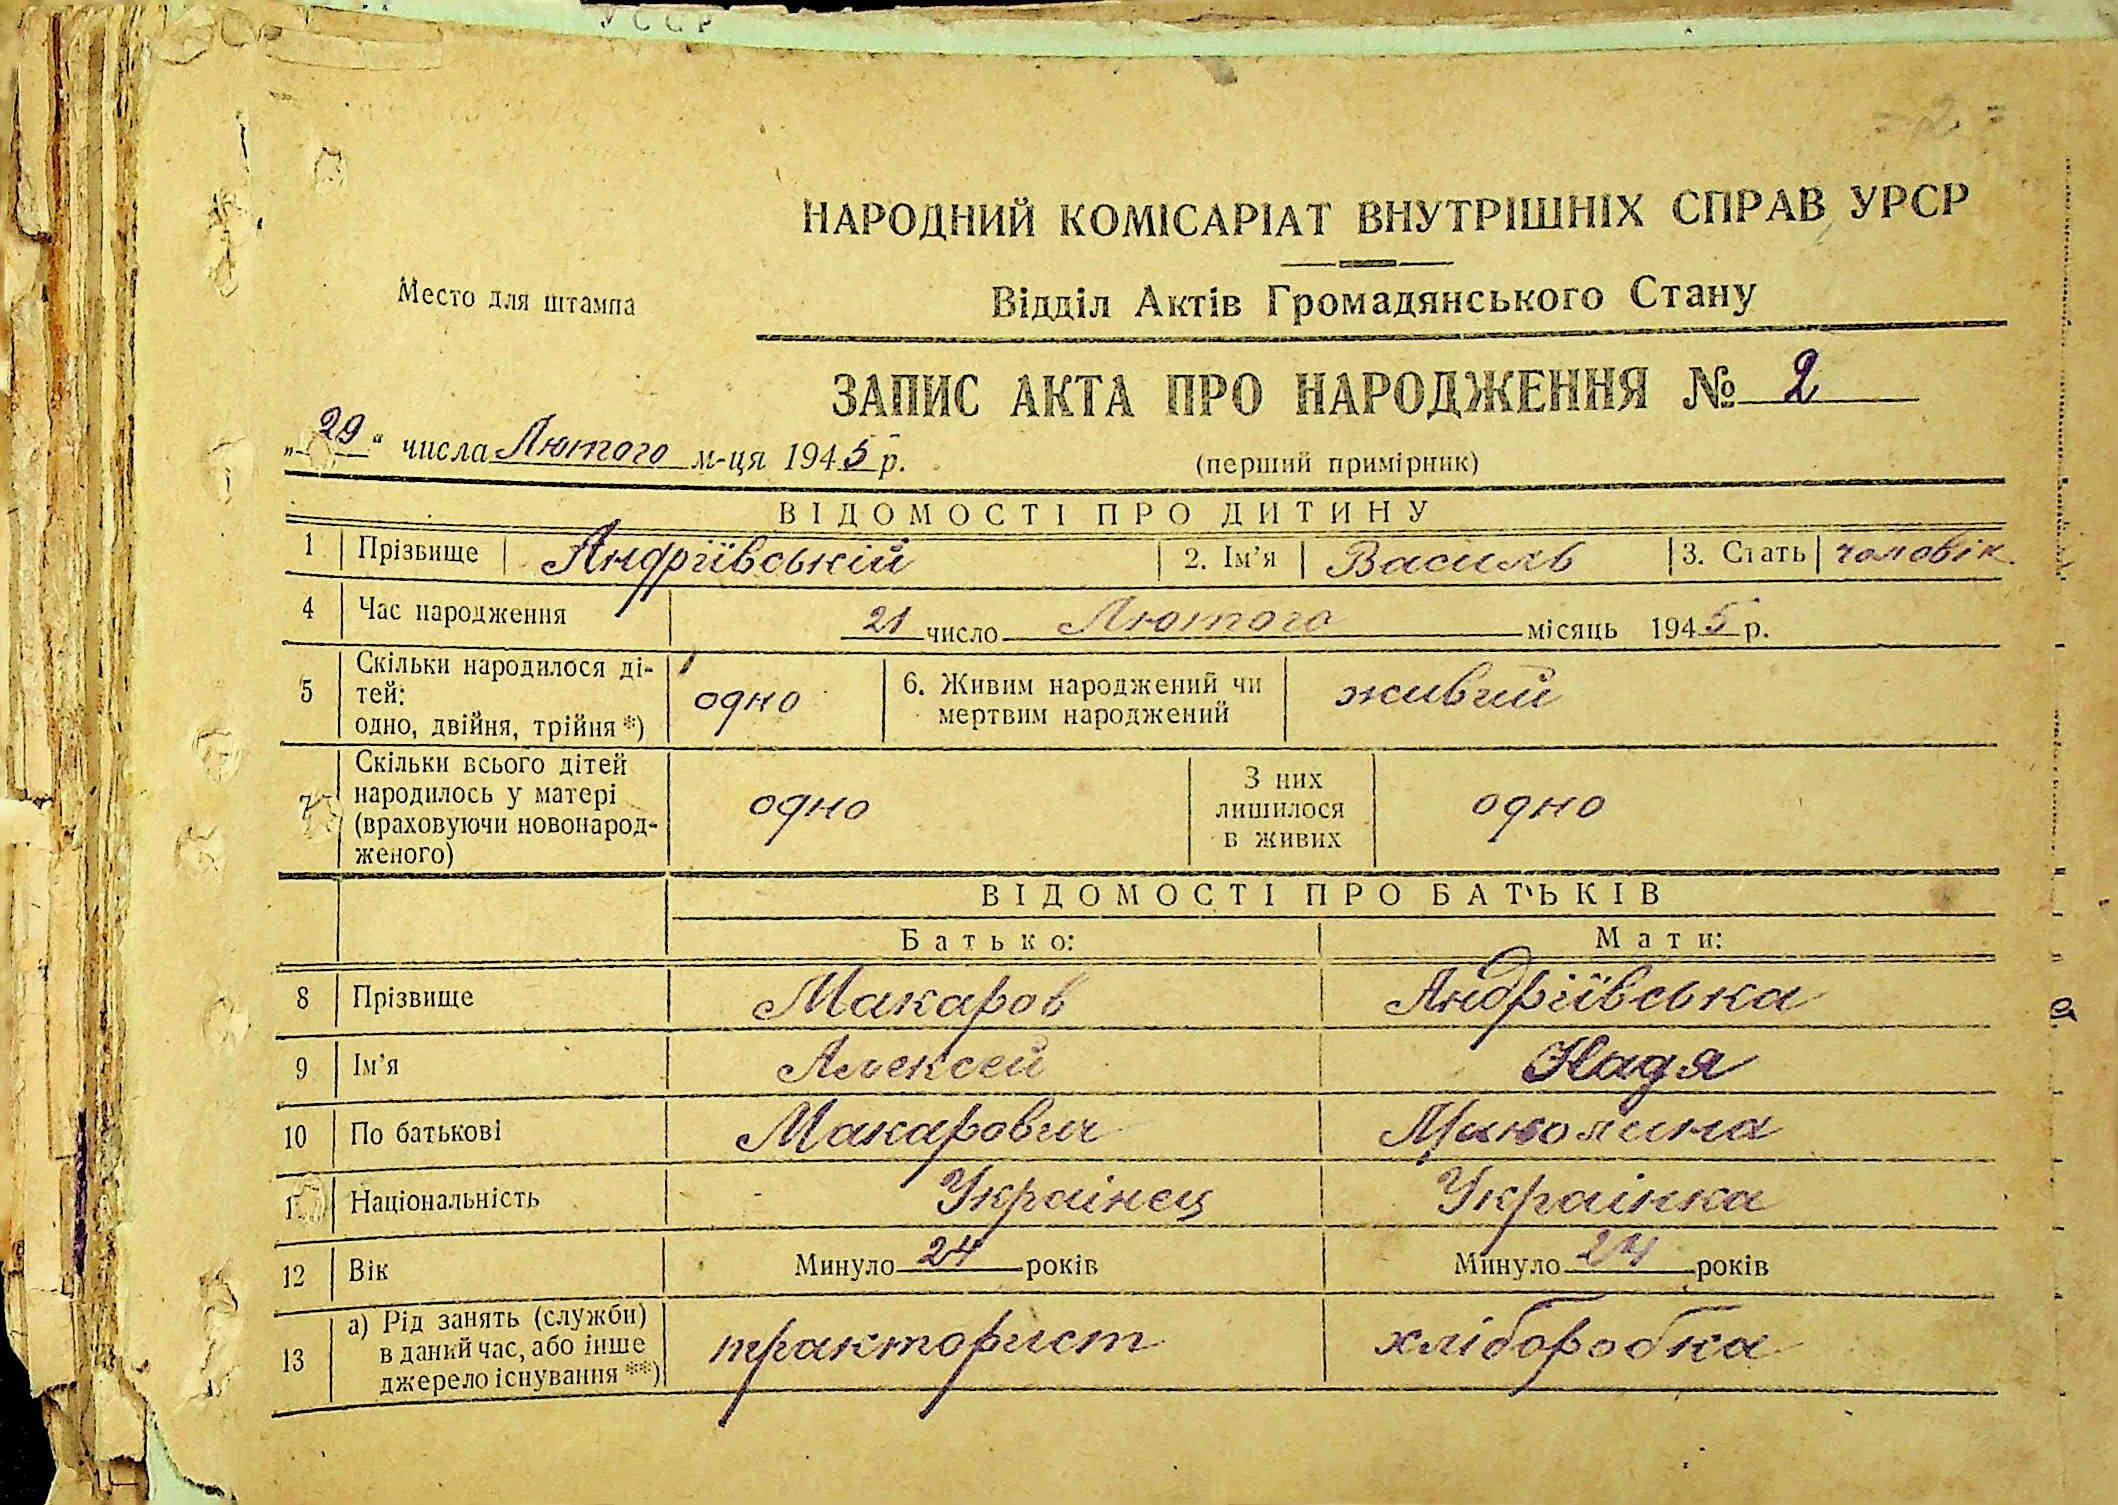 НАРОДНИЙ КОМІСАРІАТ ВНУТРІШНІХ СПРАВ УРСР
Место для штампа
Відділ Актів Громадянського Стану
ЗАПИС АКТА ПРО НАРОДЖЕННЯ № 2
„29“ числа Лютого м-ця 1945 р.
(перший примірник)
ВІДОМОСТІ ПРО ДИТИНУ
1 Прізвище Андріївській 2. Ім’я Василь 3. Стать чоловік
4 Час народження 21 число Лютого місяць 1945 р.
5 Скільки народилося ді-
тей:
одно, двійня, трійня *) одно 6. Живим народжений чи
мертвим народжений живий
7 Скільки всього дітей
народилось у матері
(враховуючи новонарод-
женого) одно З них
лишилося
в живих одно
ВІДОМОСТІ ПРО БАТЬКІВ
Батько: Мати:
8 Прізвище Макаров Андріївська
9 Ім’я Алексей Надя
10 По батькові Макарович
Національність Українец Українка
12 Вік Минуло 24 років Минуло 24 років
13 а) Рід занять (служби)
в даний час, або інше
джерело існування **) тракторист хліборобка